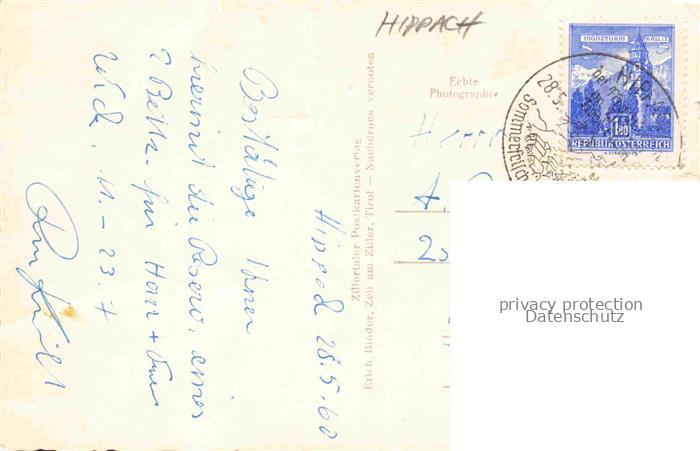 HIPPACH
Echte
Photographie
Zillertaler Postkartenverlag
Erich Binder, Zell am Ziller, Tirol — Nachdruck verboten
MÜNZTURM HALL I.T.
1.80
REPUBLIK ÖSTERREICH
28.5.
Sommerfrische
28.5.60
Bestätige Ihnen
hiermit die Reserv. eines
2 Bettz. für Herr + Frau
11 – 23. 7
Herrn
A.
privacy protection
Datenschutz